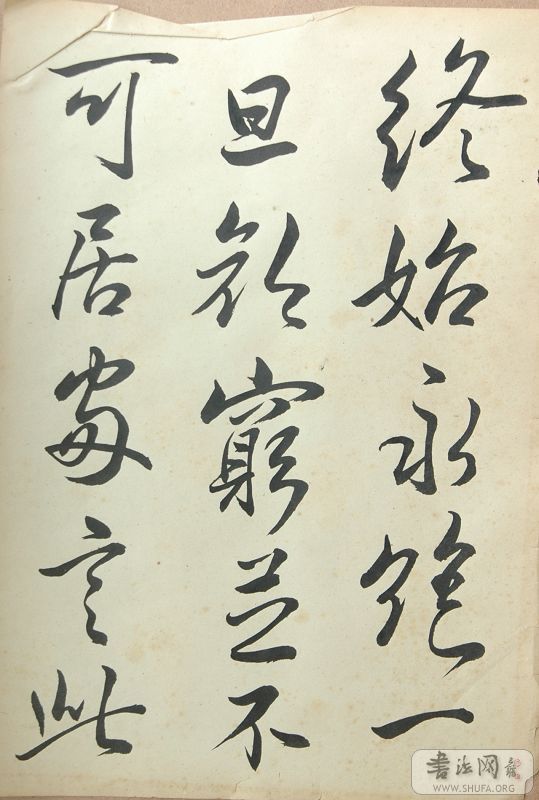 終始永絶一
旦窮不
可居處言此
書法网
WWW.SHUFA.ORG